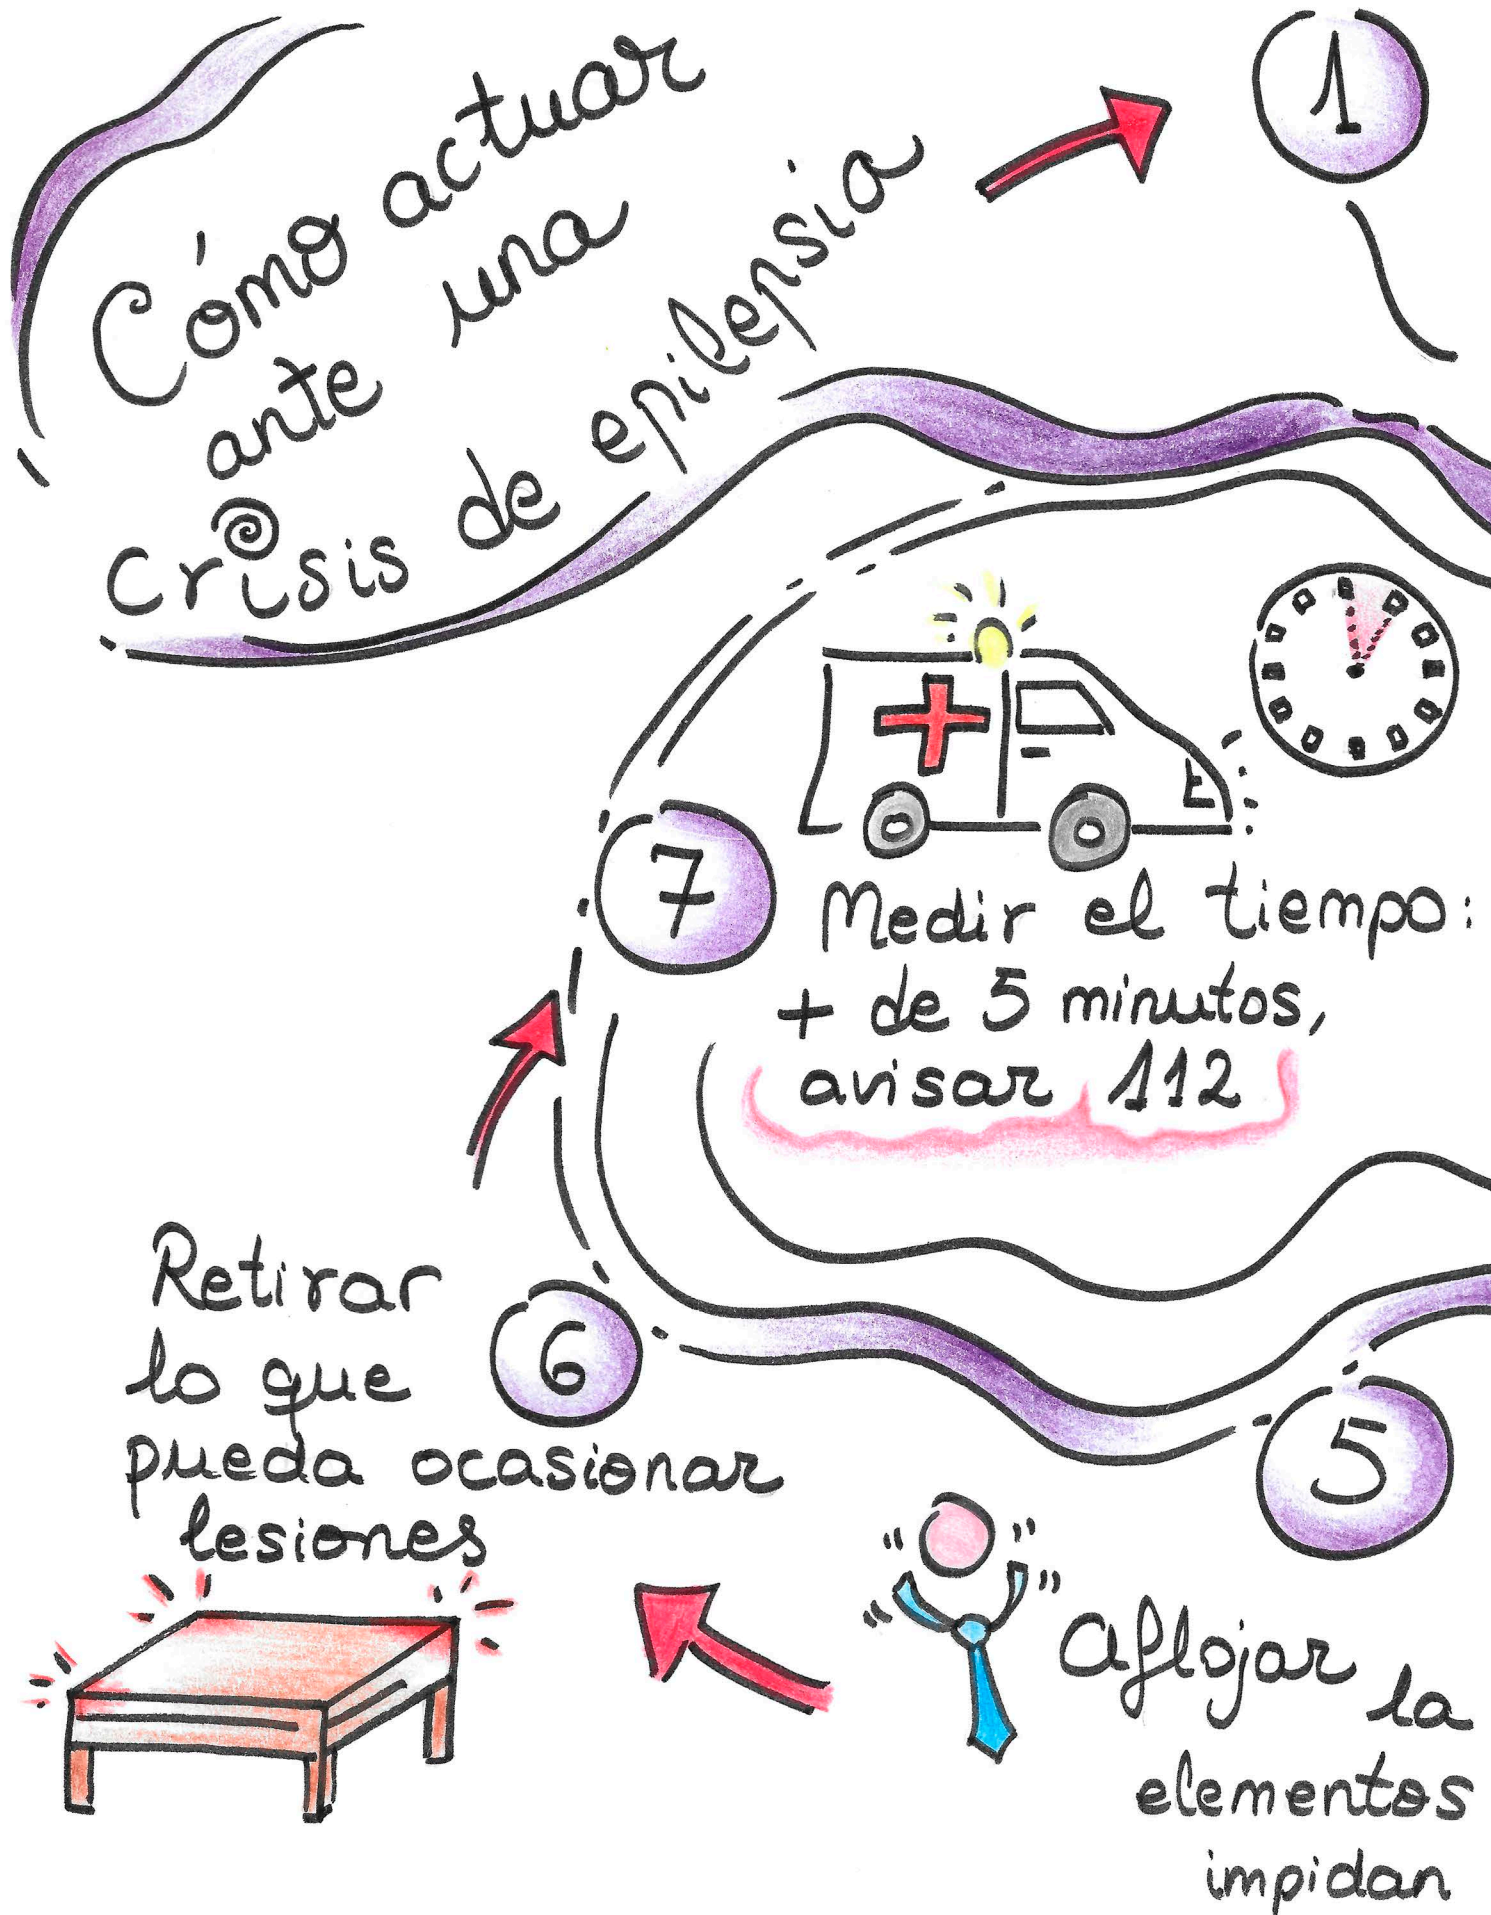 Cómo actuar
ante una
Crisis de epilepsia
1
7
Medir el tiempo:
+ de 5 minutos,
avisar 112
6
Retirar
lo que
pueda ocasionar
lesiones
5
Aflojar la
elementos
impidan